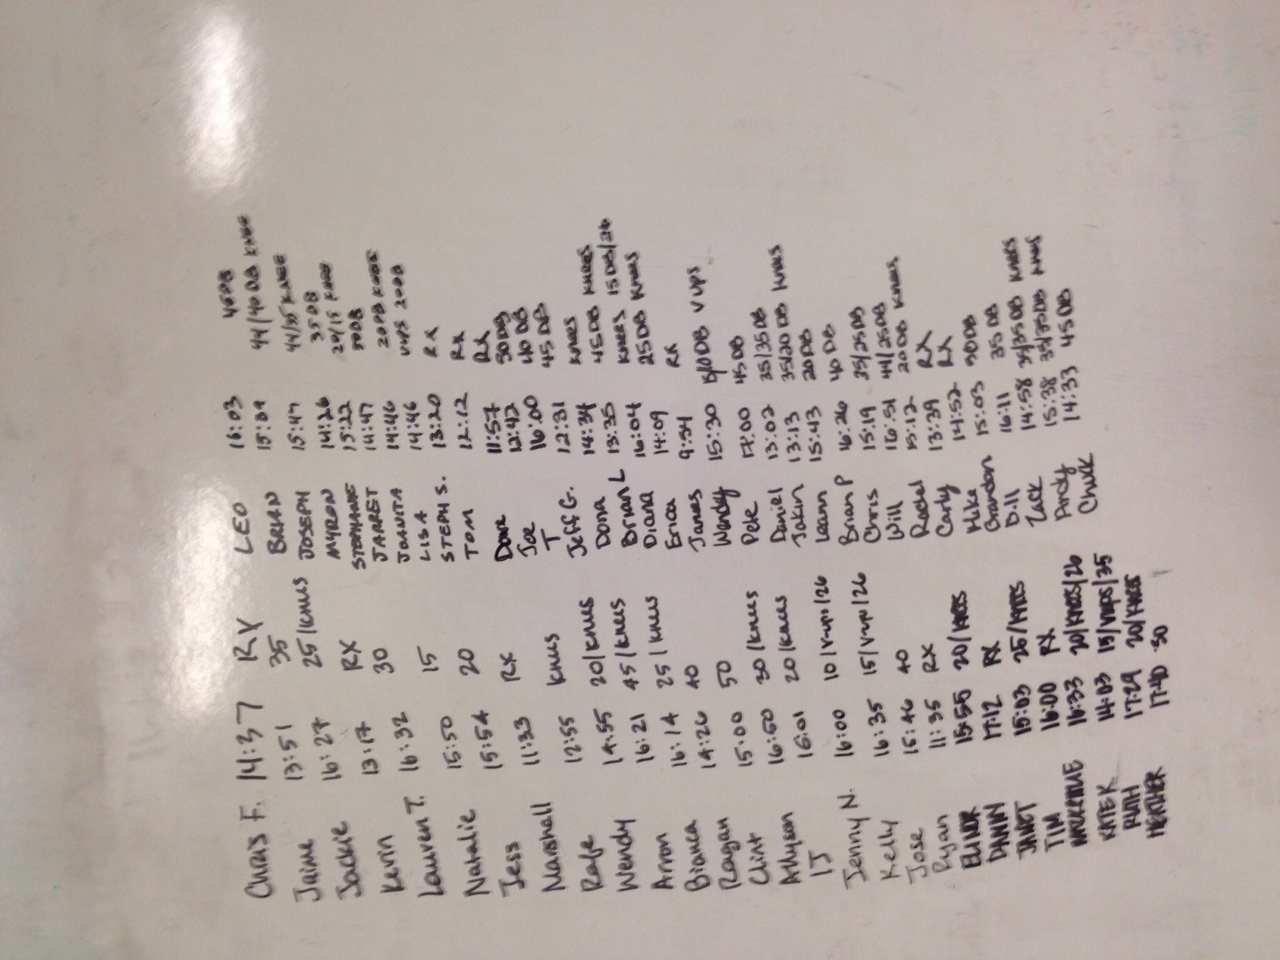 Chris F. 14:37 RX
Jaime 13:51 35
Jackie 16:27 25/knees
Kevin 13:17 RX
Lauren T. 16:32 30
Natalie 15:50 15
Jess 15:54 20
Marshall 11:33 RX
Rafe 12:55 knees
Wendy 14:55 20/knees
Arron 16:21 45/knees
Bianca 16:14 25/knees
Reagan 14:26 40
Clint 15:00 50
Allyson 16:50 30/knees
TJ 16:01 20/knees
Jenny N. 16:00 10/vups/26
Kelly 16:35 15/vups/26
Jose 15:46 40
Ryan 11:35 RX
ELINOR 15:55 20/KNEES
DANNY 17:12 RX
JANET 15:03 25/KNEES
TIM 16:00 RX
16:33 20/KNEES/26
KATE K 14:03 15/VUPS/35
RUTH 17:29 20/KNEES
HEATHER 17:40 30
LEO 16:03 40DB
BRIAN 15:01 44/40DB KNEE
JOSEPH 15:47 44/35 KNEE
MYRON 14:26 35DB
STEPHANIE 15:22 26/15 KNEE
JARRET 14:47
JUANITA 14:46 20DB KNEES
LISA 14:46 VUPS 20DB
STEPH S. 13:20 RX
TOM 12:12 RX
Dave 11:57 RX
Joe 12:42 50DB
T 16:00 40 DB
Jeff G. 12:31 45 DB
Dona 14:34 KNEES
Brian L 13:35 45DB KNEES
Diana 16:04 KNEES 15DB/26
Erica 14:09 25DB KNEES
James 9:54 RX
Wendy 15:30 DB VUPS
Pete 17:00 45DB
Daniel 13:02 35/35DB
Jakin 13:13 35/20DB KNEES
Leann 15:43 20DB
Brian P 16:26 40DB
Chris 15:19 35/25DB
Will 16:51 44/25DB
Rachel 15:12 20DB KNEES
Carly 13:39 RX
Mike 14:52 RX
Brandon 15:03 30DB
Dill 16:11 35DB
Zack 14:58 35/35DB KNEES
Andy 15:38 35/35DB KNEES
Chuck 14:33 45DB